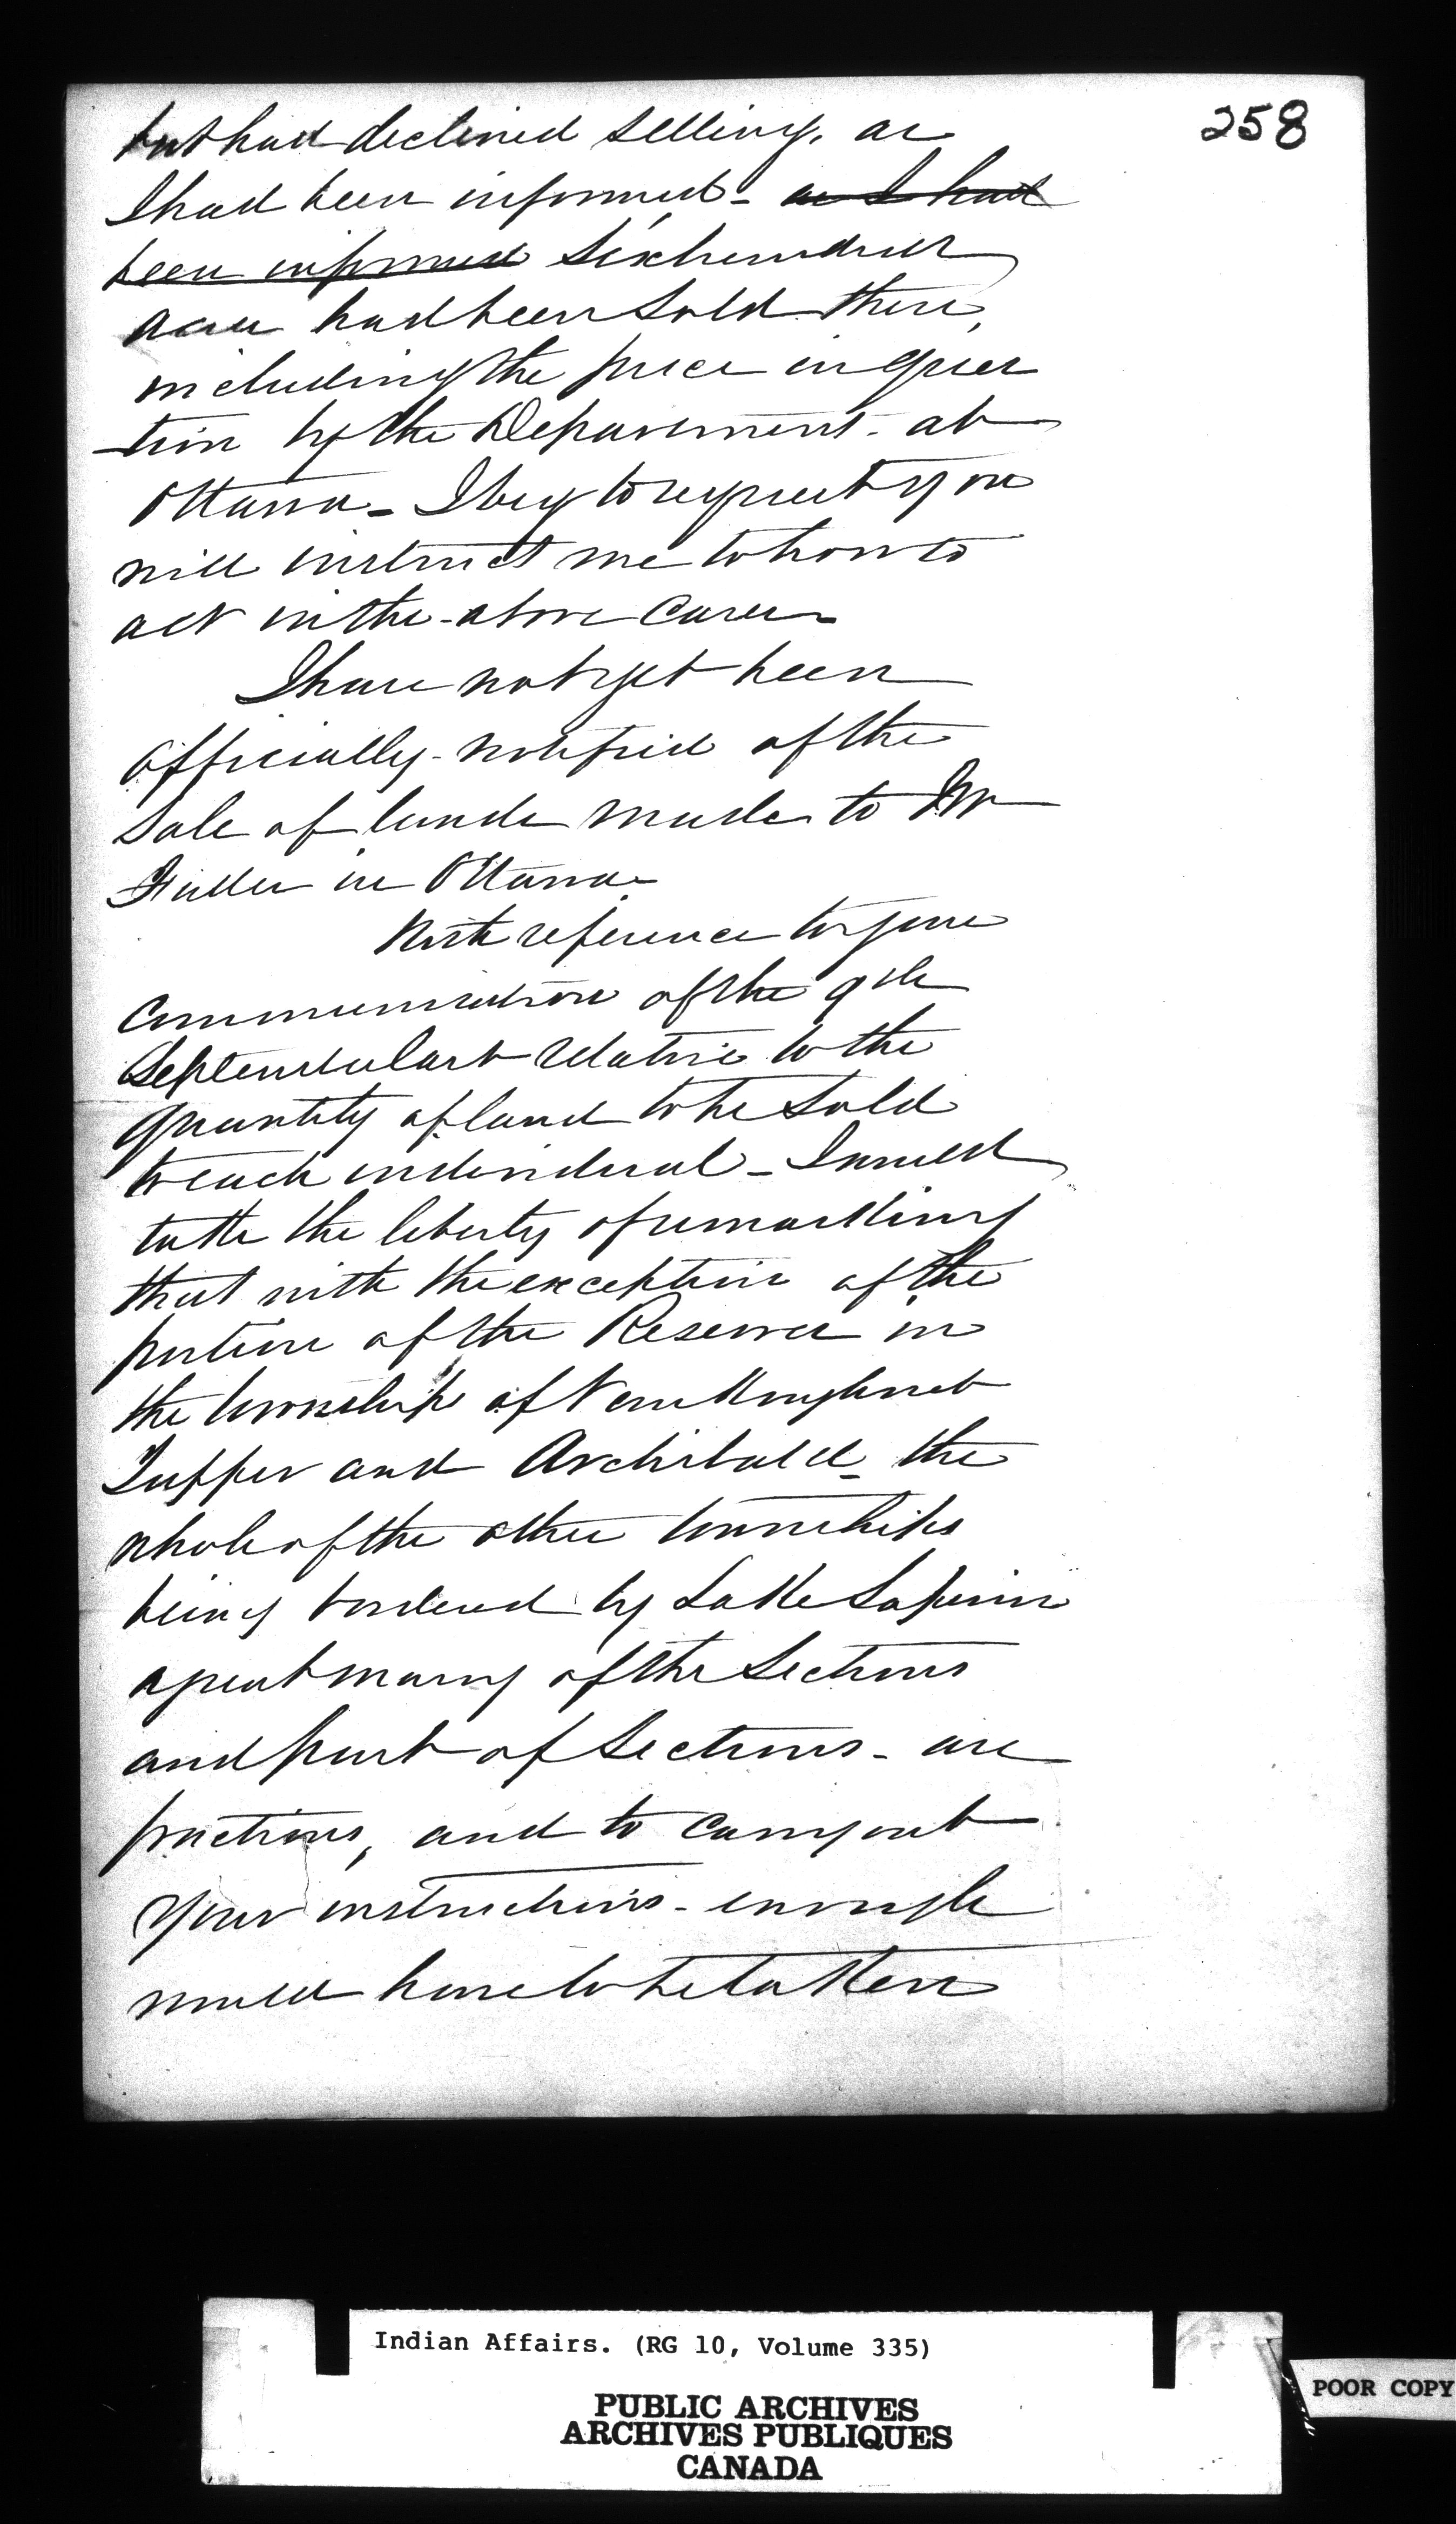 258
but had declined selling, as
I had been informed - as I had
been informed Six hundred
acres had been sold there,
including the piece in ques
-tion by the Department - at
Ottawa - I beg to request you
will instruct me to how to
act in the above cases -
I have not yet been
officially notified of the
Sale of lands made to Mr
Fuller in Ottawa -
With reference to your
Communication of the 9th
September last relative to the
quantity of land to be sold
to each individual - I would
take the liberty of remarking
that with the exception of the
portion of the Reserve in
the townships of Vankoughnet
Tupper and Archibald - the
whole of the other townships
being bordered by Lake Superior
a great many of the Sections
and part of Sections - are
fractions, and to carry out
your instructions - enough
would have to be taken
Indian Affairs. (RG 10, Volume 335)
PUBLIC ARCHIVES
ARCHIVES PUBLIQUES
CANADA
POOR COPY